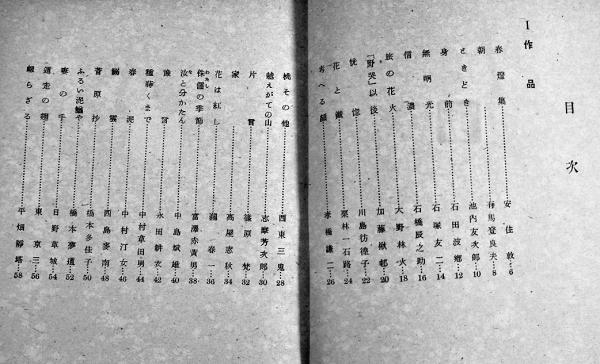 目次
I 作品
春燈集……安住敦…6
朝……有馬登良夫…8
ときどき……池内友次郎…10
身前……石田波郷…12
無明光……石塚友二…14
信濃……石橋辰之助…16
旅の花火……大野林火…18
「野哭」以後……加藤楸邨…20
恍惚……川島彷徨子…22
花と……栗林一石路…24
考へる……孝橋謙二…26
桃その他……西東三鬼…28
越えがての山……志摩芳次郎…30
片言……篠原梵…32
家……高屋窓秋…34
花は紅し……瀧春一…36
侏儒の季節……富澤赤黄男…38
汝と分かたん……中島斌雄…40
陵……永田耕衣…42
種蒔くまで……中村草田男…44
春泥……中村汀女…46
鰯雲……西島麥南…48
菅原抄……橋本多佳子…50
ふるい泥鰌や……橋本夢道…52
妻の手……日野草城…54
道走の翅……東京三…56
眠らざる……平畑靜塔…58